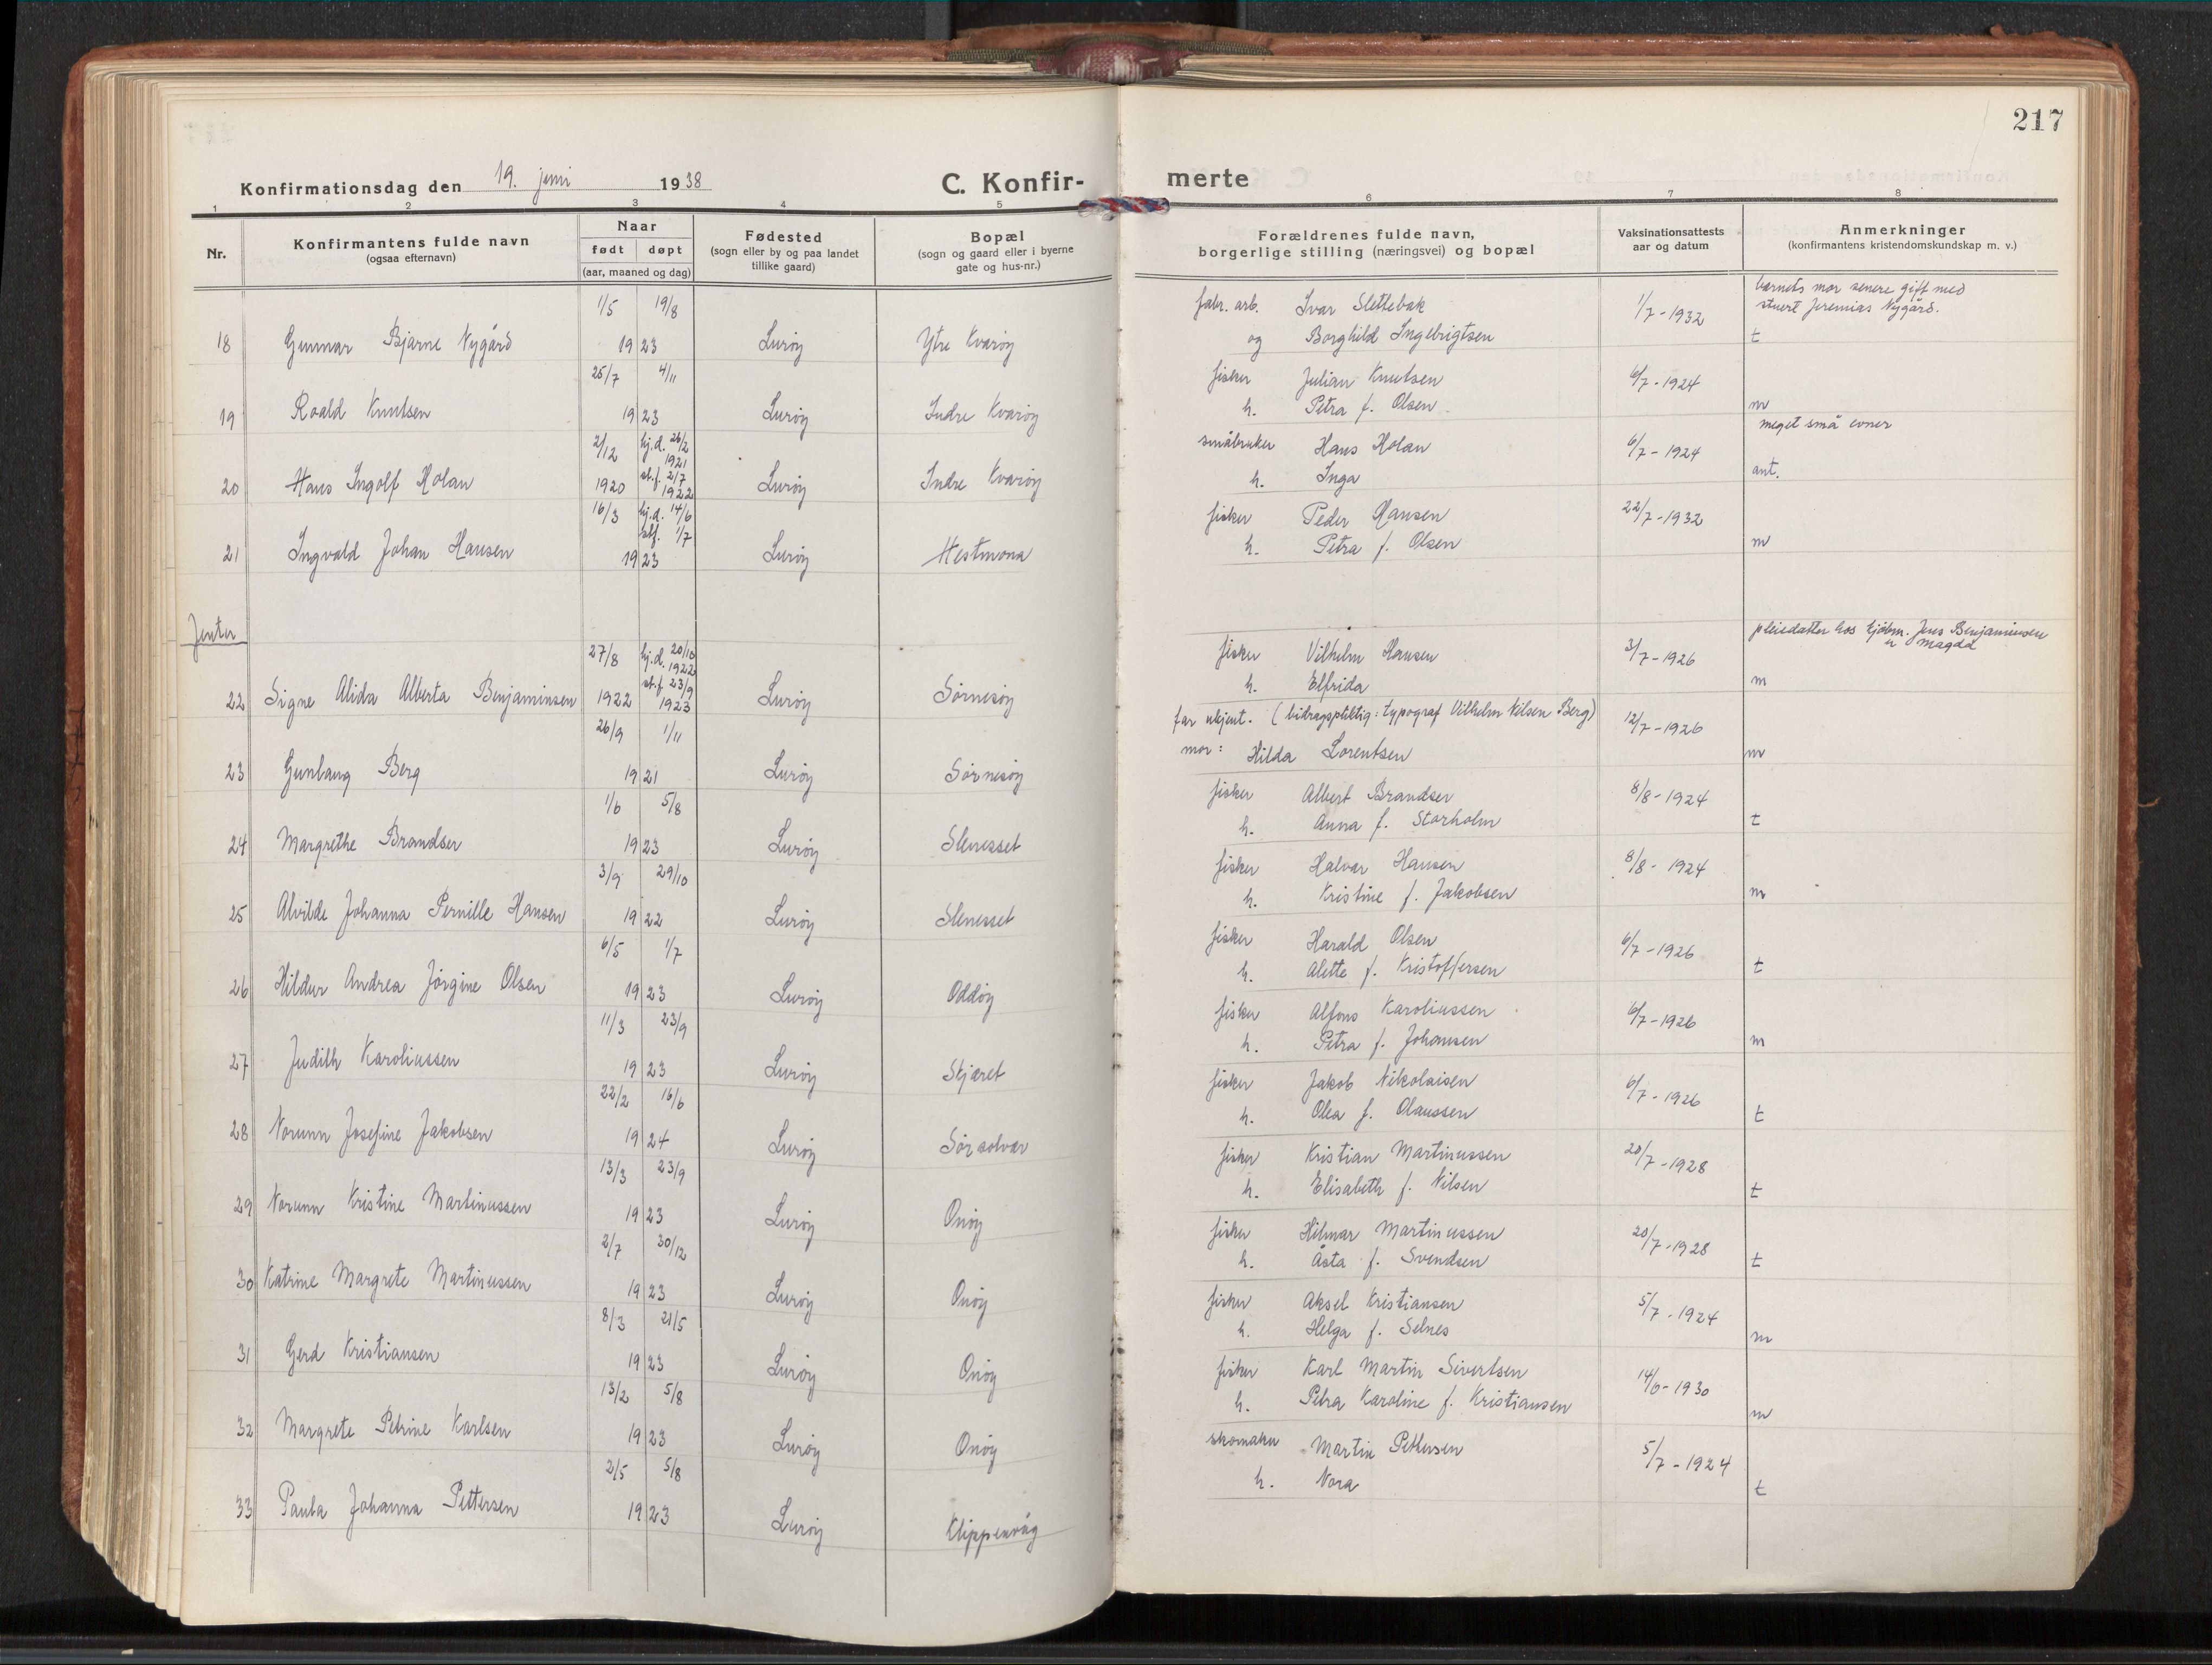 217
Konfirmationsdag den 19. juni 1938
C. Konfirmerte
1 2 3 4 5 6 7 8
Nr.
Konfirmantens fulde navn
(ogsaa efternavn)
Naar
født døpt
(aar, maaned og dag)
Fødested
(sogn eller by og paa landet
tillike gaard)
Bopæl
(sogn og gaard eller i byerne
gate og hus-nr.)
Forældrenes fulde navn,
borgerlige stilling (næringsvei) og bopæl
Vaksinationsattests
aar og datum
Anmerkninger
(konfirmantens kristendomskundskap m. v.)
1/5 19/8 fabr. arb. Ivar Slettebak 1/7-1932 barnets mor senere gift med
stuert Jeremias Nygård.
18 Gunnar Bjarne Nygård 1923 Lurøy Ytre Kvarøy og Borghild Ingebrigtsen t
25/7 4/11 fisker Julian Knutsen 6/7-1924
19 Roald Knutsen 1923 Lurøy Indre Kvarøy h. Petra f. Olsen m
2/12 hj.d. 26/2 1921 småbruker Hans Holan 6/7-1924 meget små evner
20 Hans Ingolf Holan 1920 st.f. 2/7 1922 Lurøy Indre Kvarøy h. Inga ant.
16/3 hj.d. 14/6 stf. 1/7 fisker Peder Hansen 22/7-1932
21 Ingvald Johan Hansen 1923 Lurøy Hestmona h. Petra f. Olsen m
Jenter
27/8 hj.d. 20/10 1922 fisker Vilhelm Hansen 3/7-1926 pleiedatter hos kjøbm. Jens Benjaminsen
Magda
22 Signe Alida Alberta Benjaminsen 1922 st.f. 23/9 1923 Lurøy Sørnesøy h. Elfrida m
26/9 1/11 far ukjent. (bidragspliktig: typograf Vilhelm Nilsen Berg) 12/7-1926
23 Gunlaug Berg 1921 Lurøy Sørnesøy mor: Hilda Lorentsen m
1/6 5/8 fisker Albert Brandser 8/8-1924
24 Margrethe Brandser 1923 Lurøy Slenesset h. Anna f. Storholm t
3/9 29/10 fisker Halvar Hansen 8/8-1924
25 Alvilde Johanna Pernille Hansen 1922 Lurøy Slenesset h. Kristine f. Jakobsen m
6/5 1/7 fisker Harald Olsen 6/7-1926
26 Hildur Andrea Jørgine Olsen 1923 Lurøy Oddøy h. Alette f. Kristoffersen t
11/3 23/9 fisker Alfons Karoliussen 6/7-1926
27 Judith Karoliussen 1923 Lurøy Skjæret h. Petra f. Johansen m
22/2 16/6 fisker Jakob Nikolaisen 6/7-1926
28 Norunn Josefine Jakobsen 1924 Lurøy Sørsolvær h. Olea f. Olaussen t
13/3 23/9 fisker Kristian Martinussen 20/7-1928
29 Norunn Kristine Martinussen 1923 Lurøy Onøy h. Elisabeth f. Nilsen t
2/7 30/12 fisker Hilmar Martinussen 20/7-1928
30 Katrine Margrete Martinussen 1923 Lurøy Onøy h. Åsta f. Svendsen t
8/3 21/5 fisker Aksel Kristiansen 5/7-1924
31 Gerd Kristiansen 1923 Lurøy Onøy h. Helga f. Selnes m
13/2 5/8 fisker Karl Martin Sivertsen 14/6-1930
32 Margrete Petrine Karlsen 1923 Lurøy Onøy h. Petra Karoline f. Kristiansen m
2/5 5/8 skomaker Martin Pettersen 5/7-1924
33 Paula Johanna Pettersen 1923 Lurøy Klippenvåg h. Nora t